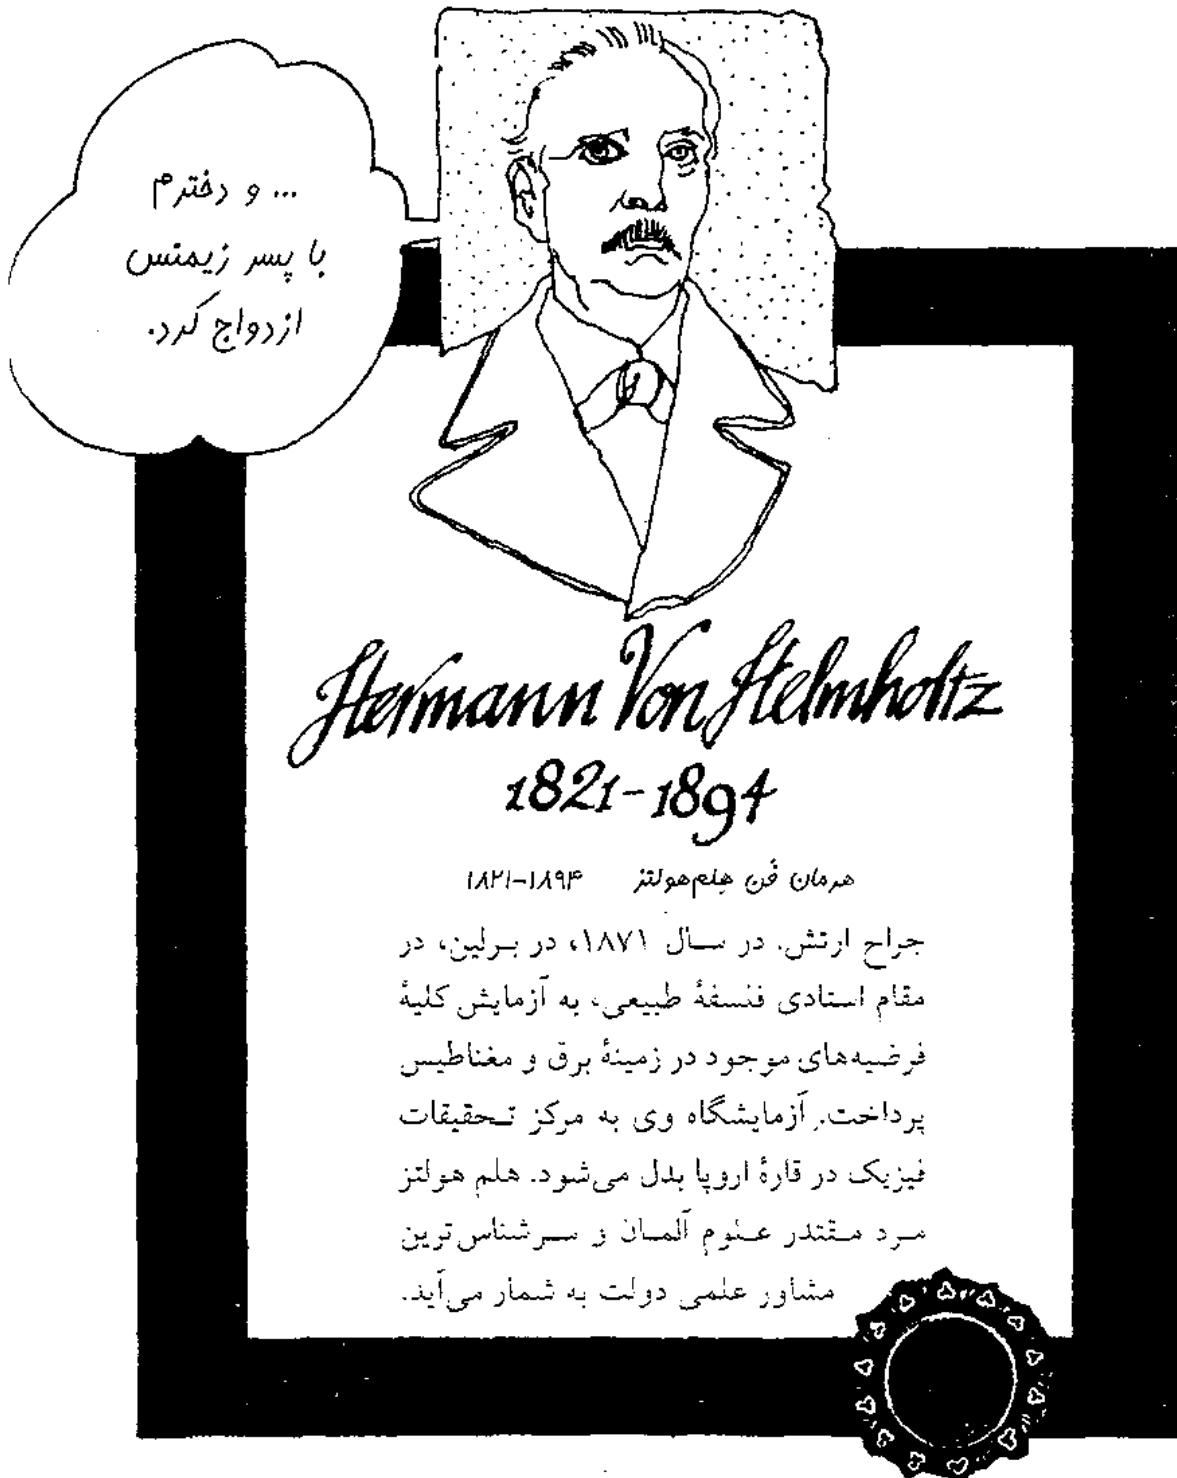 ... و دخترم
با پسر زیمنس
ازدواج کرد.
Hermann Von Helmholtz
1821-1894
هرمان فُن هِلم‌هولتز ۱۸۹۴-۱۸۲۱
جراح ارتش. در سال ۱۸۷۱، در برلین، در
مقام استادی فلسفهٔ طبیعی، به آزمایش کلیهٔ
فرضیه‌های موجود در زمینهٔ برق و مغناطیس
پرداخت. آزمایشگاه وی به مرکز تحقیقات
فیزیک در قارهٔ اروپا بدل می‌شود. هلم هولتز
مرد مقتدر علوم آلمان و سرشناس‌ترین
مشاور علمی دولت به شمار می‌آید.